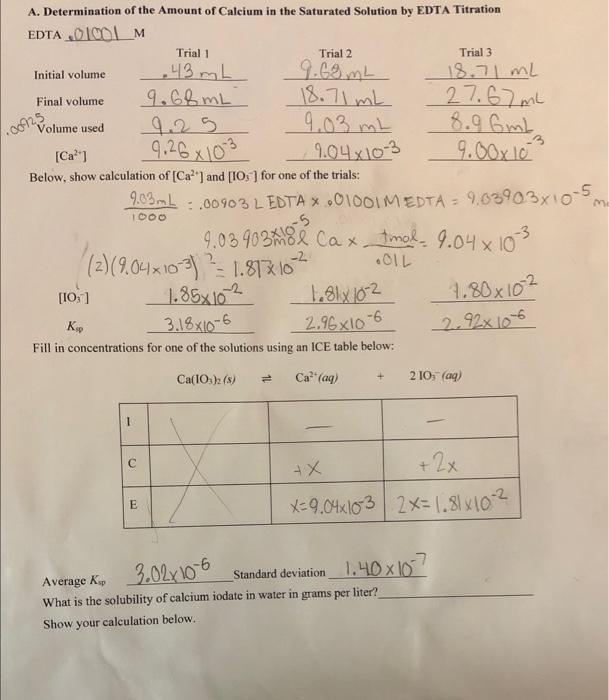 A. Determination of the Amount of Calcium in the Saturated Solution by EDTA Titration
EDTA .01001 M
Trial 1 Trial 2 Trial 3
Initial volume .43 mL 9.68 mL 18.71 mL
Final volume 9.68 mL 18.71 mL 27.67 mL
.00925 Volume used 9.25 9.03 mL 8.96 mL
[Ca²⁺] 9.26 x 10⁻³ 9.04 x 10⁻³ 9.00 x 10⁻³
Below, show calculation of [Ca²⁺] and [IO₃⁻] for one of the trials:
9.03 mL / 1000 = .00903 L EDTA x .01001 M EDTA = 9.03903 x 10⁻⁵ m
9.03903 x 10⁻⁵ mol Ca x 1mol / .01L = 9.04 x 10⁻³
(2)(9.04 x 10⁻³) = 1.81 x 10⁻²
[IO₃⁻] 1.85 x 10⁻² 1.81 x 10⁻² 1.80 x 10⁻²
Ksp 3.18 x 10⁻⁶ 2.96 x 10⁻⁶ 2.92 x 10⁻⁶
Fill in concentrations for one of the solutions using an ICE table below:
Ca(IO₃)₂ (s) ⇌ Ca²⁺ (aq) + 2 IO₃⁻ (aq)
I — —
C +x +2x
E x = 9.04 x 10⁻³ 2x = 1.81 x 10⁻²
Average Ksp 3.02 x 10⁻⁶ Standard deviation 1.40 x 10⁻⁷
What is the solubility of calcium iodate in water in grams per liter?
Show your calculation below.